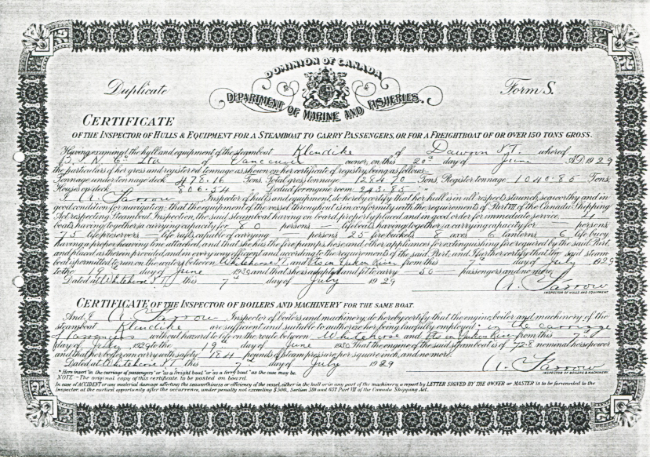 DOMINION OF CANADA
Duplicate
Form S.
DEPARTMENT OF MARINE AND FISHERIES.
CERTIFICATE
OF THE INSPECTOR OF HULLS & EQUIPMENT FOR A STEAMBOAT TO CARRY PASSENGERS, OR FOR A FREIGHTBOAT OF OR OVER 150 TONS GROSS.
Having examined the hull and equipment of the steamboat Klondike of Dawson Y.T. whereof
B.Y.N. Co Ltd of Vancouver owner, on this 20th day of June A.D. 1929
the particulars of her gross and registered tonnage as shown on her certificate of registry, being as follows:
Tonnage under tonnage deck 478.16 Tons. Total gross tonnage Tons. Register tonnage Tons
Houses on deck 806.54 Deduct for engine room 243.85
I, A. Farrow Inspector of hulls and equipment, do hereby certify that her hull is in all respects staunch, seaworthy and in
good condition for navigation; that the equipment of the vessel throughout is in conformity with the requirements of Part VII of the Canada Shipping
Act respecting Steamboat Inspection, the said steamboat having on board, properly placed and in good order for immediate service 4
boats having together a carrying capacity for persons lifeboats having together a carrying capacity for persons
life preservers life rafts capable of carrying persons 25 fire buckets 6 axes lanterns 6 life buoy
having a proper heaving line attached, and that she has the fire pumps, hose and other appliances for extinguishing fire required by the said Part,
and placed as therein provided, and in every way efficient, and according to the requirements of the said Part, and I further certify that the said steam-
boat is permitted to run on the waters between Whitehorse Y.T. and Yukon River from this day of July 1929
to the day of June and that she is adapted and fit to carry 50 passengers and no more.
Dated at Whitehorse Y.T. this 7th day of July 1929
A. Farrow
INSPECTOR OF HULLS AND EQUIPMENT
CERTIFICATE OF THE INSPECTOR OF BOILERS AND MACHINERY FOR THE SAME BOAT.
And I, A. Farrow Inspector of boilers and machinery, do hereby certify that the engine, boiler and machinery of the
steamboat Klondike are sufficient and suitable to authorize her being lawfully employed * in the carriage
of passengers without hazard to life on the route between Whitehorse and from this
day of July 1929 to the day of June that the engine of the said steamboat is of nominal horsepower
and that her boiler can carry with safety 184 pounds of steam pressure per square inch, and no more.
Dated at Whitehorse Y.T. this day of July 1929
A. Farrow
* Here insert "in the carriage of passengers" or "as a freight boat," or "as a ferry boat" as the case may be.
NOTE.—The original copy of this certificate to be posted on board.
In case of ACCIDENT or any material damage affecting the seaworthiness or efficiency of the vessel, either in the hull or in any part of the machinery, a report by LETTER SIGNED BY THE OWNER or MASTER is to be forwarded to the
inspector at the earliest opportunity after the occurrence, under penalty not exceeding $500, Section of the Canada Shipping Act.